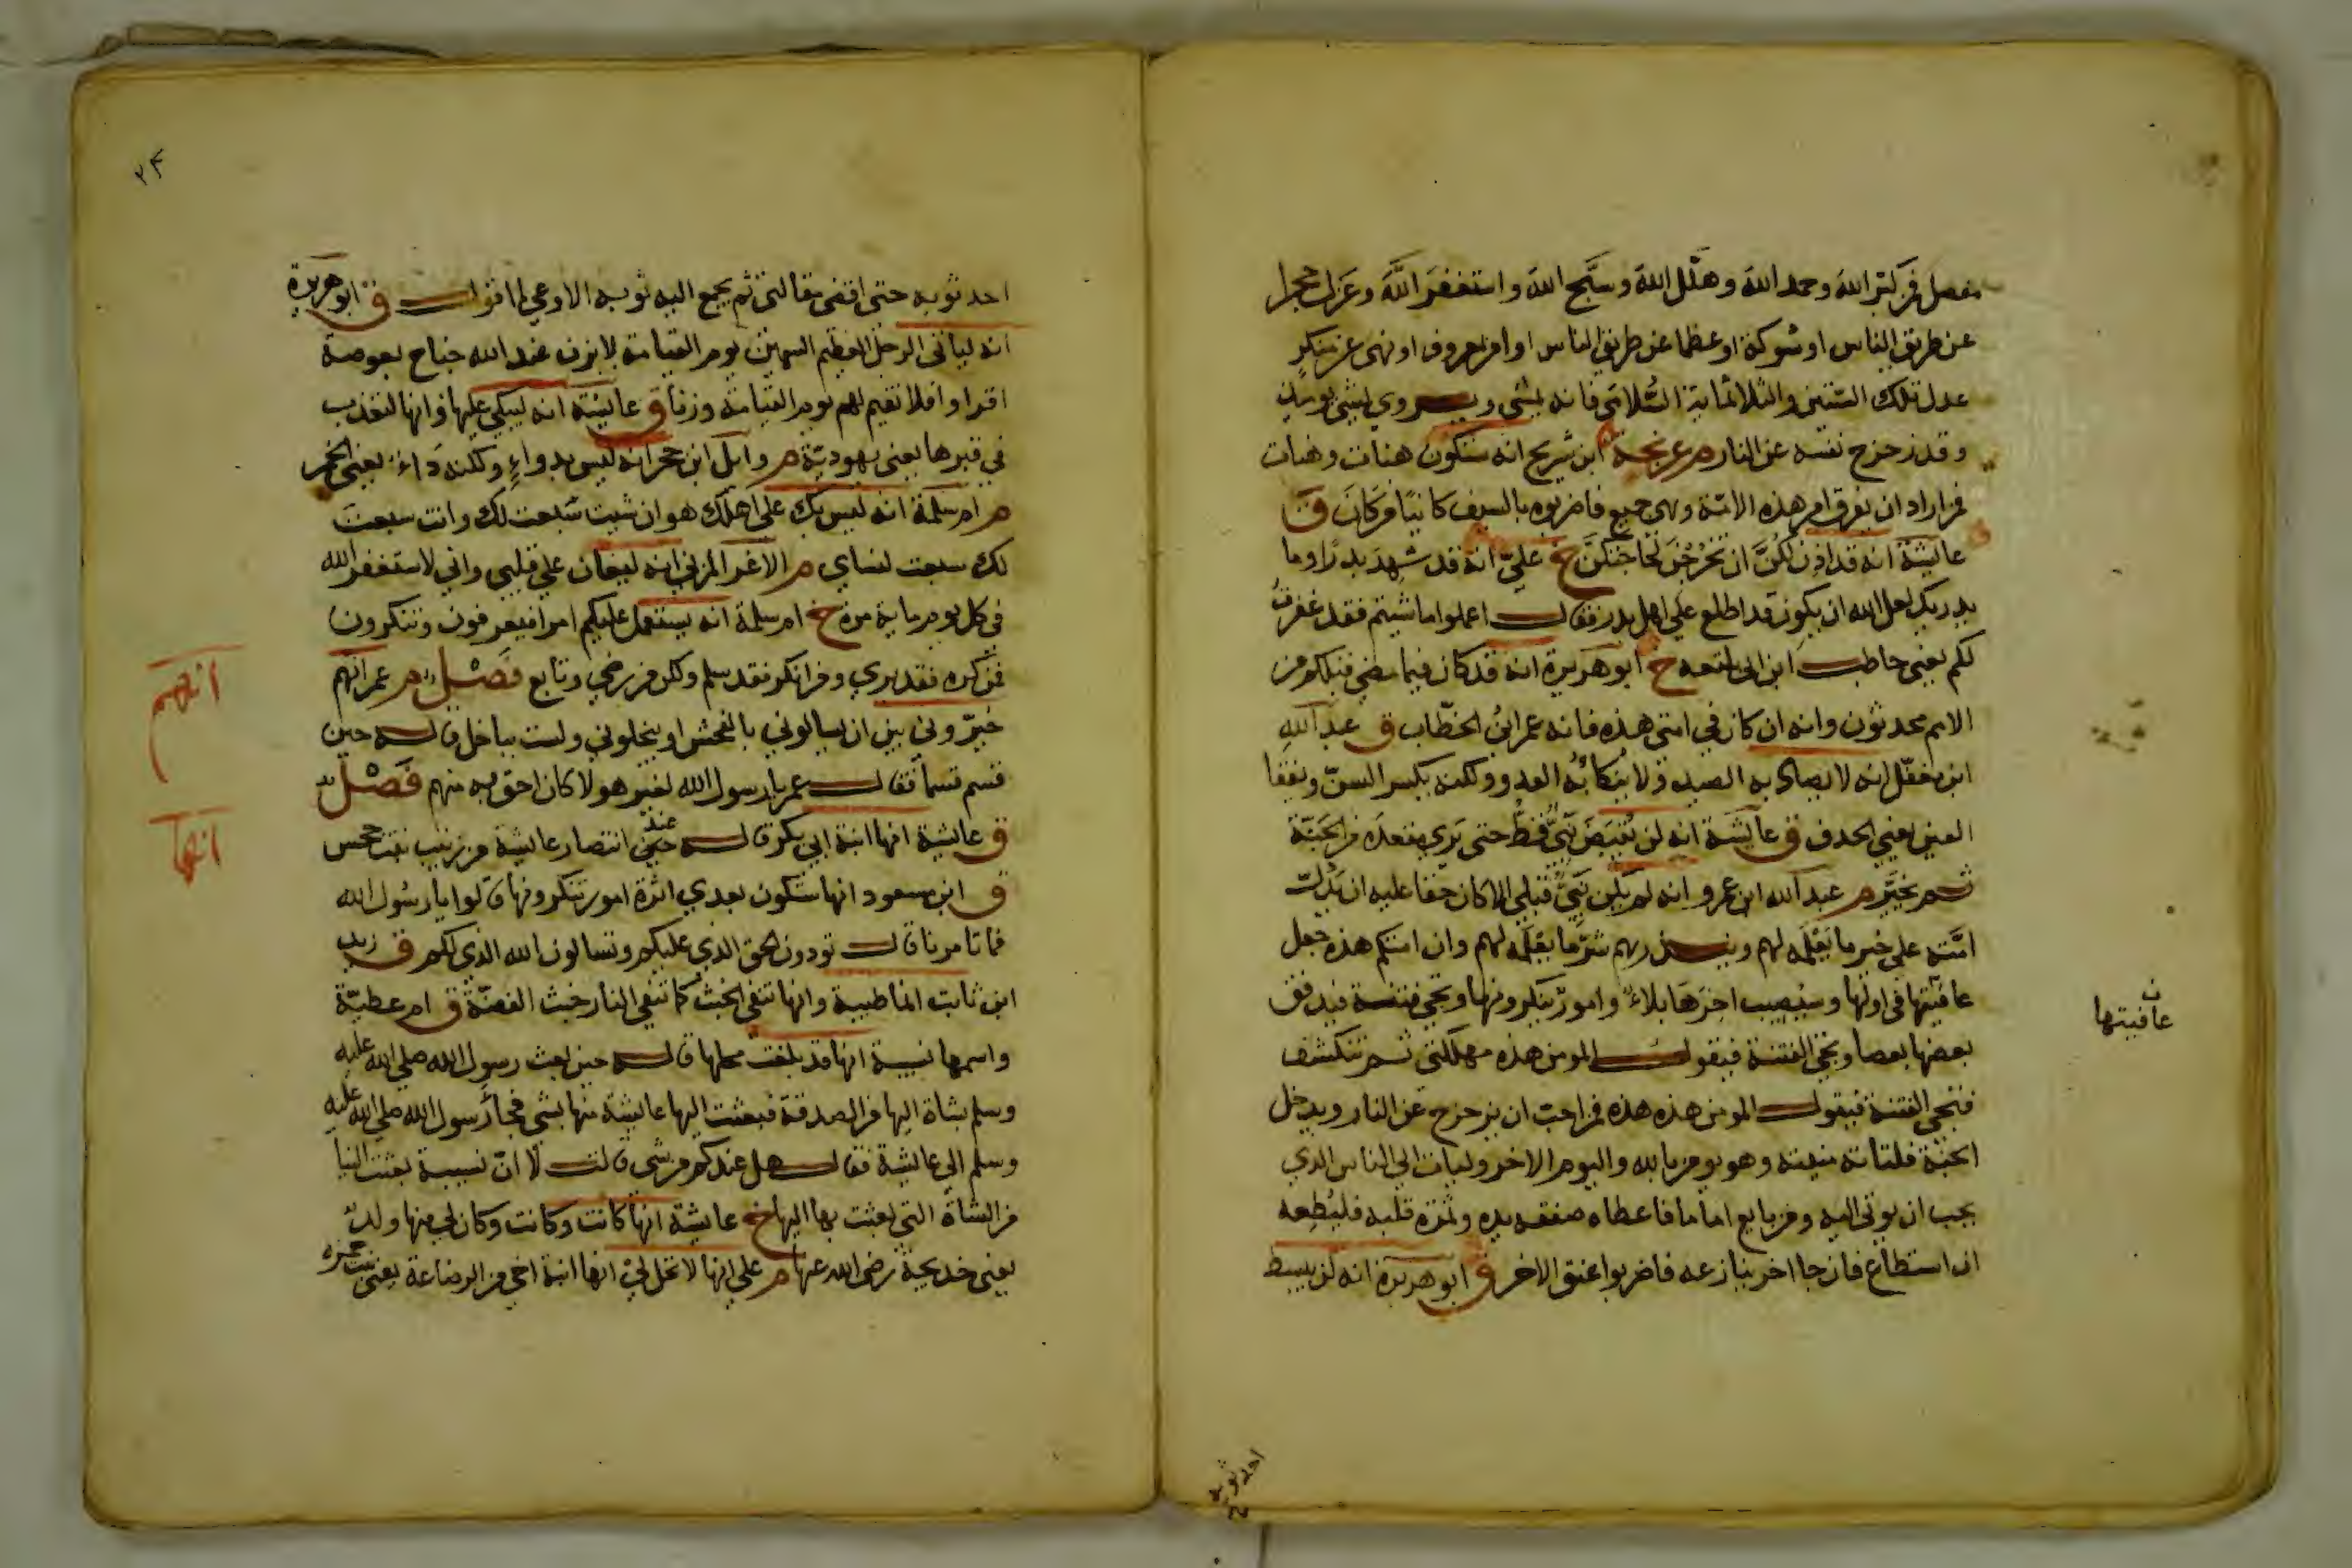 مفصل فمن كبّر اللهَ وحمد اللهَ وهلّل اللهَ وسبَّح اللهَ واستغفرَ اللَّهَ وعَزل حجرا
عن طريق الناس او شوكة او عظما عن طريق الناس او امر بمعروف او نهى عن منكرٍ
عدل تلك الستين والثلاثماية السُّلامَى فانه يمشى ويروي يمشي يوميذ
وقد زحزح نفسه عن النار م عرفجة ابن شريح انه ستكون هنات وهنات
فمن اراد ان يفرق امر هذه الامّة وهى جميع فاضربوه بالسيف كاينًا من كانَ ق
عايشة انه قد اذِن لكُنَّ ان تَخْرُجْنَ لحَاجتكنَّ خ عليّ انه قد شهِدَ بدرًا وما
يدريك لعل الله ان يكون قد اطلع علي اهل بدر فقال اعملوا ما شيتم فقد غفرتُ
لكم يعني حاطب ابن ابى بلتعه خ ابو هريرة انه قد كان فيما مضي قبلكم من
الامم محدثون وانه ان كان في امتى هذه فانه عمر ابنُ الخطّاب ق عبد اللهِ
ابن مغفّل انه لا يصاد به الصيد ولا يُنكأ بُه العدو ولكنه يكسر السنّ ويفقا
العين يعني الحذف ق عايشَة انه لن يُقبَضَ نَبيٌّ قطُّ حتى يَرَي مقعدَه من الجَنّة
ثم يخيَّر م عبد الله ابن عمرو انه لم يكن نَبيٌّ قبلي الا كان حقا عليه ان يَدُلّ
امَّته على خير ما يَعْلمَه لهم وينذرهم شرّ ما يعْلمه لهم وان امتكم هذه جعل
عافيتها في اولها وسيُصيب اخرَهَا بلاءٌ وامورٌ تنكرونها وتجي فتنة فيدقق
بعضها بعضا وتجي الفتنة فيقول المومن هذه مهلكتي ثم تنكشف
فتجي الفتنة فيقول المومن هذه هذه فمن احبّ ان يزحزح عن النار ويدخل
الجنّة فلتاته منيته وهو يومن بالله واليوم الاخر وليات الي الناس الذي
يحب ان يوتى اليه ومن بايع اماما فاعطاه صفقه يده وثمرَة قلبه فليُطِعه
ان استطاع فان جا اخر ينازعه فاضربوا عنق الاخر ق ابو هريرة انه لن يبسط
عافيتها
احد ثوبه
٢۴
احد ثوبه حتى اقضى مقالتى ثم يجمع اليه ثوبه الا وعي ما اقول ق ابو هريرة
انه لياتى الرجل العظيم السمين يوم القيامة لا يزن عند الله جناح بعوضة
اقراوا فلا نقيم لهم يوم القيامة وزنا ق عايشة انه ليبكي عليها وانها لتعذب
في قبرها يعنى يهوديّة م وايل ابن حجر انه ليس بدواءٍ ولكنه دَاءٌ يعني الخمر
م ام سلمة انه ليس بك على اهلك هوان شيت سَبعت لك وانت سبعت
لك سبعت لنساي م الاغر المزني انه ليغان علي قلبي واني لاستغفر الله
في كل يوم ماية مرة خ ام سلمة انه يستعمل عليكم امرا فتعرفون وتنكرون
فمن كره فقد بري ومن انكر فقد سلم ولكن من رضي وتابع فَصْل م عمر انهم
خيّروني بين ان يسالوني بالفحش او يبخلوني ولست بباخل قاله حين
قسم قسما فقال عمر يا رسول الله لغير هولا كان احق به منهم فَصْل
ق عايشة انها ابنة ابي بكر قاله عند حين انتصار عايشة من زينب بنت جحس
ق ابن مسعود انها ستكون بعدي اثرة امور تنكرونها قالوا يا رسُول الله
فما تامرنا قال تودون الحق الذي عليكم وتسالون الله الذي لكم ق زيد
ابن ثابت انها طيبة وانها تنفي الخبث كما تنفي النار خبث الفضّة ق ام عطيّة
واسمها نسيبة انها قد بلغت محلها قاله حين بعث رسول الله صلي الله عليه
وسلم بشاة اليها من الصدقة فبعثت اليها عايشة منها بشي فجا رَسول الله صلي الله عليه
وسلم الي عايشة فقال هل عندكم من شي قالت لا انّ نسيبة بعثت الينا
من الشاة التي بعثت بها اليها خ عايشة انها كانت وكانت وكان لي منها ولد
يعني خديجة رضى الله عنها م علي انها لا تحل لي انها ابنة اخي من الرضاعة يعني بنت حمزه
انهم
انها